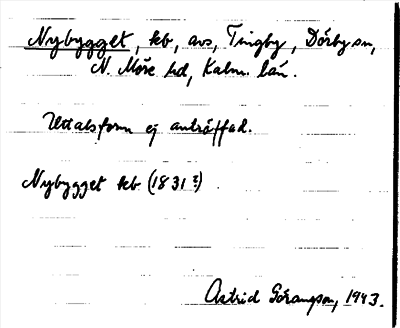 Nybygget, kb, avs, Tingby, Dörby sn,
N. Möre hd, Kalm. län.
Uttalsform ej anträffad.
Nybygget kb (1831?)
Astrid Göransson, 1943.